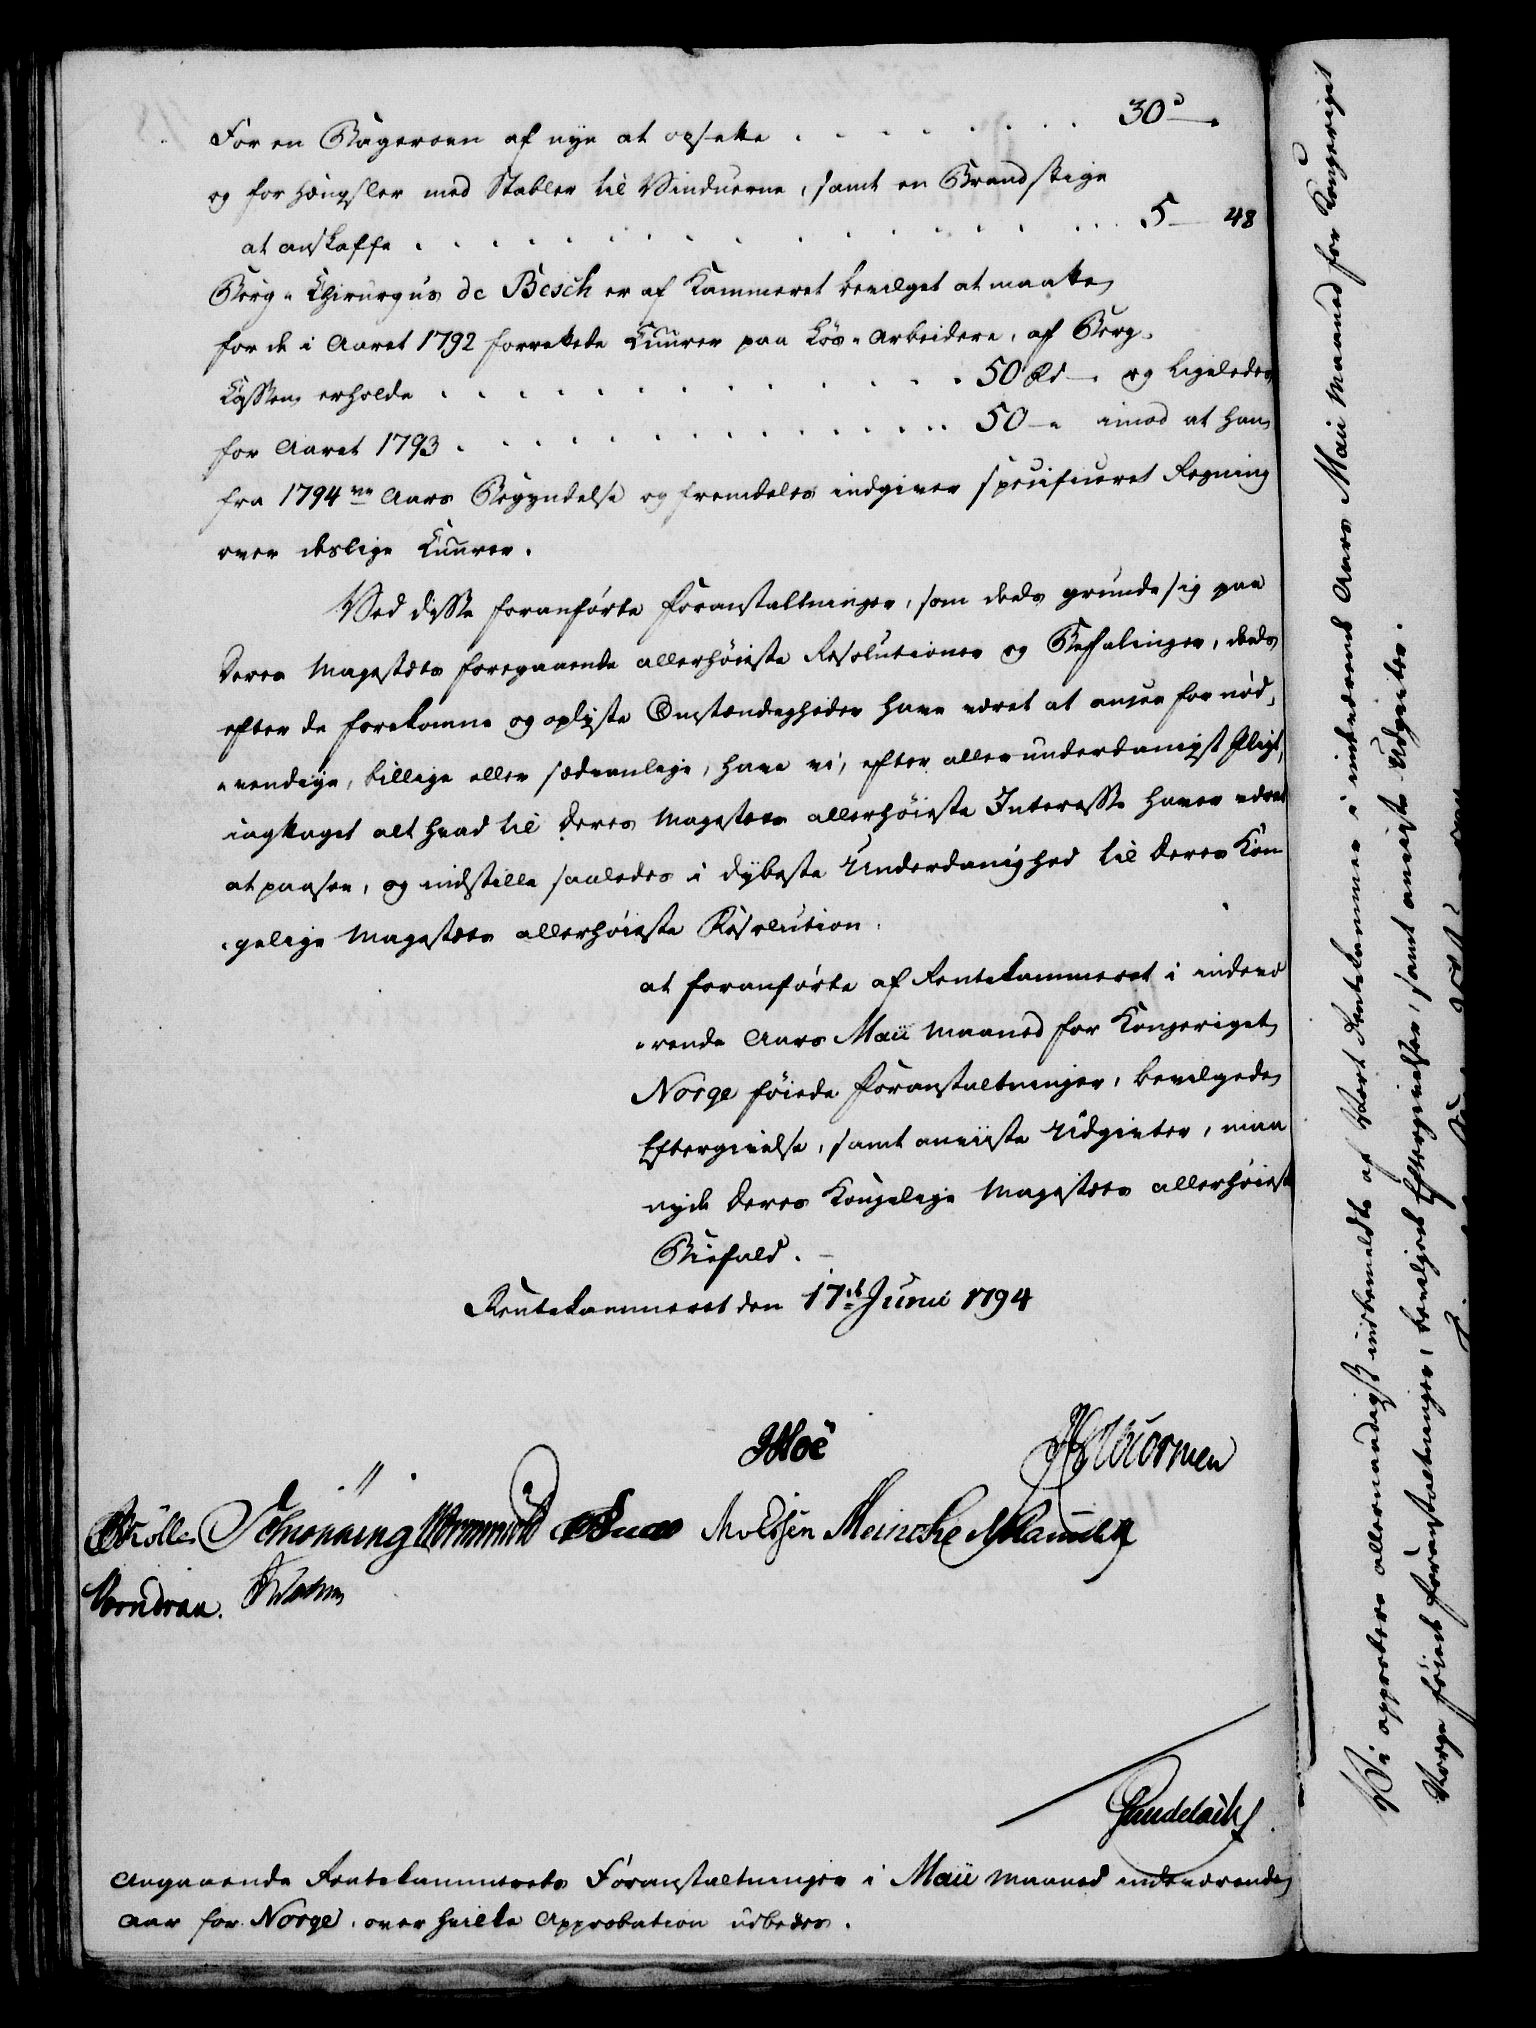 For en Bageroen af nye at opsette . . . . . . . . 30 " —.
og for Hængsler med Stabler til Vinduerne, samt en Brandstige
at anskaffe . . . . . . . . . . . . . . . . 5 — 48
Berg-Chirurgus de Besch er af Kammeret bevilget at maatte
for de i Aaret 1792 forrettede Cuurer paa Løs-Arbeidere, af Berg-
Cassen erholde . . . . . . . . . . . . . 50 Rd —. og ligeledes
for Aaret 1793 . . . . . . . . . . . . . 50 — " imod at han
fra 1794 de Aars Begyndelse og fremdeles indgiver specificeret Regning
over deslige Cuurer.
Ved disse foranførte Foranstaltninger, som deels grunde sig paa
Deres Majestæts foregaaende allerhøieste Resolutioner og Befalinger, deels
efter de forekomne og oplyste Omstændigheder have været at ansee for nød-
-vendige, billige eller sædvanlige, have vi, efter allerunderdanigst Pligt,
iagttaget alt hvad til Deres Majestæts allerhøieste Interesse haver været
at paasee, og indstille saaledes i dybeste Underdanighed til Deres Kon-
-gelige Majestæts allerhøieste Resolution.
at foranførte af Rentekammeret i indevæ-
-rende Aars Maii Maaned for Kongeriget
Norge føiede Foranstaltninger, bevilgede
Eftergivelse, samt anviiste Udgivter, maa
nyde Deres Kongelige Majestæts allerhøieste
Biefald. —
Rentekammeret den 17de Junii 1794
Hoë
Wormen
Schiønning Wormskiold Molssen Meincke
Vondran.
Gundelach
Angaaende Rentekammerets Foranstaltninger i Maii Maaned indeværende
Aar for Norge, over hvilke Approbation udbedes.
Vi approbere allernaadigst indbemeldte af Vort Rentekammer i indeværende Aars Maii Maaned for Kongeriget
Norge føiede Foranstaltninger, bevilgede Eftergivelser, samt anviiste Udgivter.